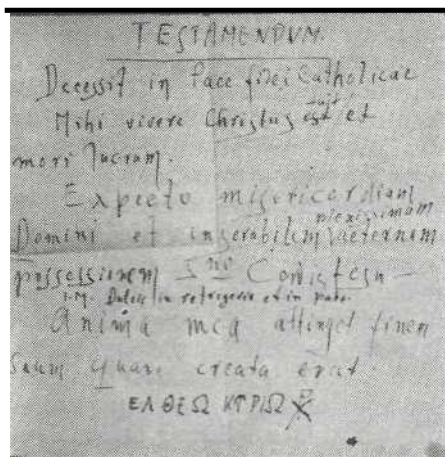 TESTAMENDUM.
Decessit in Pace fidei Catholicae
Mihi vivere Christus est fuit et
mori lucrum.
Expecto misericordiam
Domini et plexissimam aeternam
possessionem Cordis Jesu
I.M. Dulcis in refrigerio et in pace.
Anima mea attinget finem
suum quare creata erat.
ΕΛΘΕΩ ΚΥΡΙΩ